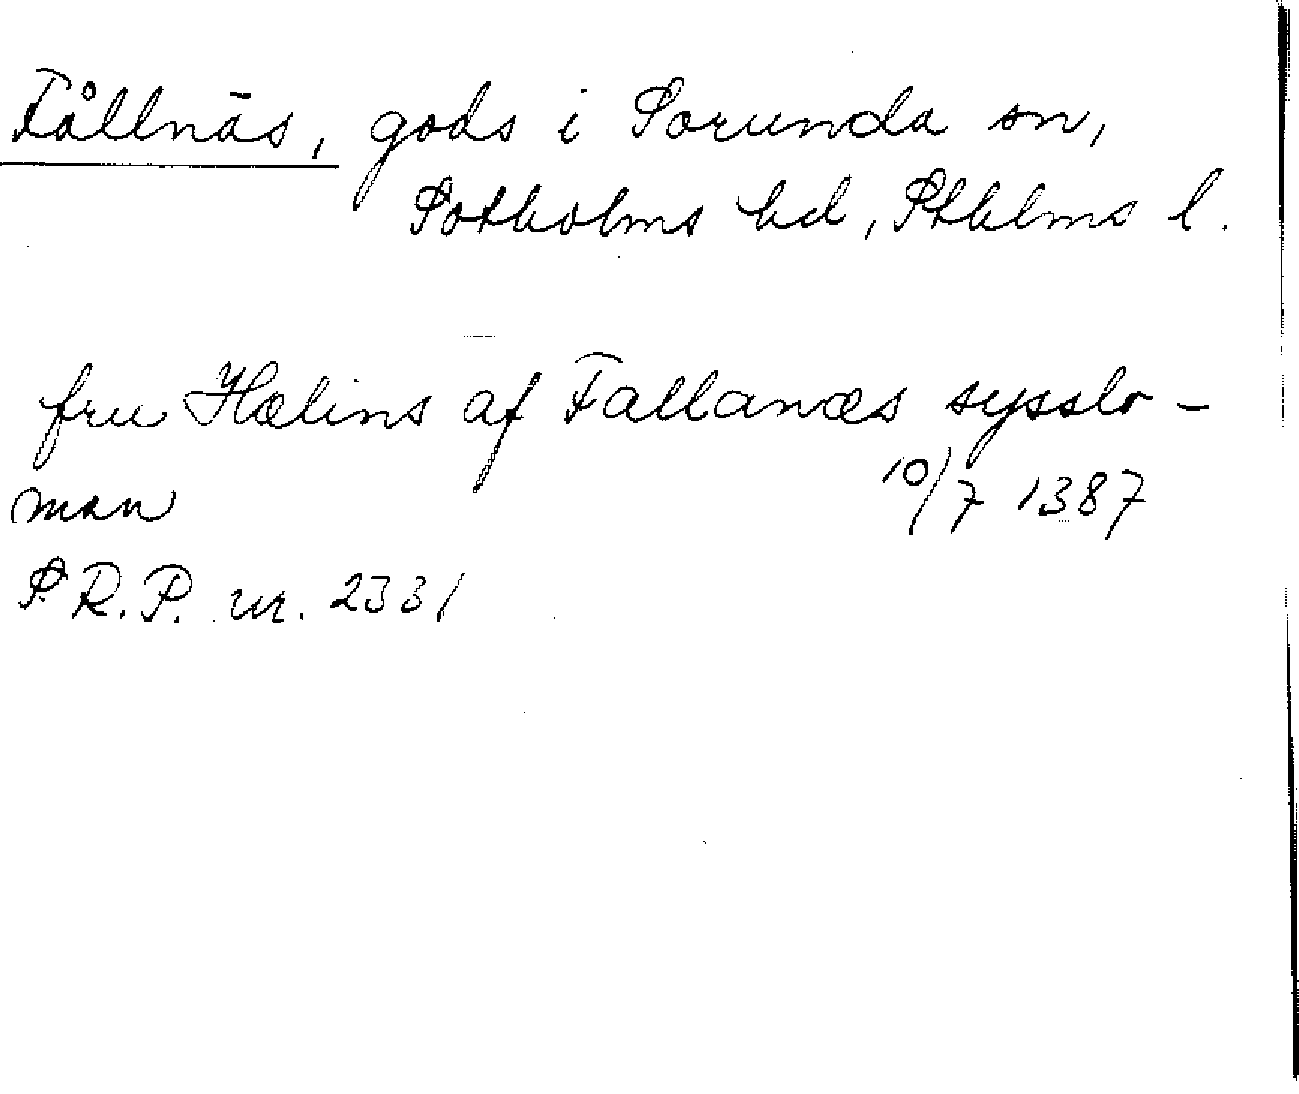 Fållnäs, gods i Sorunda sn,
Sotholms hd, Sthlms l.
fru Hælins af Fallanæs sysslo-
man 10/7 1387
S R. P. nr. 2331